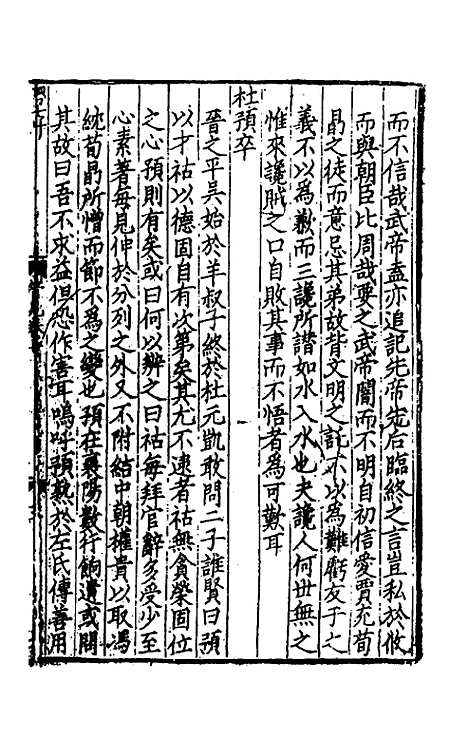 而不信哉武帝盍亦追記先帝先后臨終之言豈私於攸
而與朝臣比周哉要之武帝闇而不明自初信愛賈充荀
勗之徒而意忌其弟故背文明之託不以為難虧友于之
義不以為歉而三讒所譖如水入水也夫讒人何世無之
惟來讒賊之口自敗其事而不悟者為可歎耳
杜預卒
晉之平吳始於羊叔子終於杜元凱敢問二子誰賢曰預
以才祜以德固自有次第矣其尤不逮者祜無貪榮固位
之心預則有矣或曰何以辨之曰祜每拜官辭多受少至
心素著每見仲於分列之外又不附結中朝權貴以取馮
紞荀勗所憎而節不為之變也預在襄陽數行餉遺或問
其故曰吾不求益但恐作害耳嗚呼預熟於左氏傳善用